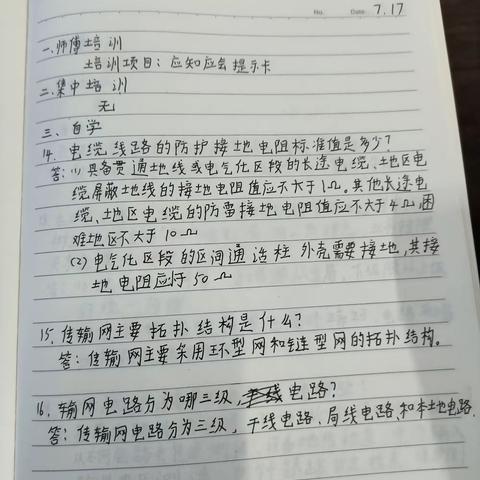 No.
Date. 7.17
一、师傅培训
培训项目：应知应会提示卡
二、集中培训
无
三、自学
14、电缆线路的防护接地电阻标准值是多少？
答：(1)具备贯通地线或电气化区段的长途电缆、地区电
缆屏蔽地线的接地电阻值应不大于1Ω。其他长途电
缆、地区电缆的防雷接地电阻值应不大于4Ω,困
难地区不大于10Ω
(2)电气化区段的区间通话柱外壳需要接地,其接
地电阻应于50Ω
15、传输网主要拓扑结构是什么？
答：传输网主要采用环型网和链型网的拓扑结构。
16、输网电路分为哪三级,电路？
答：传输网电路分为三级，干线电路、局线电路、和本地电路.